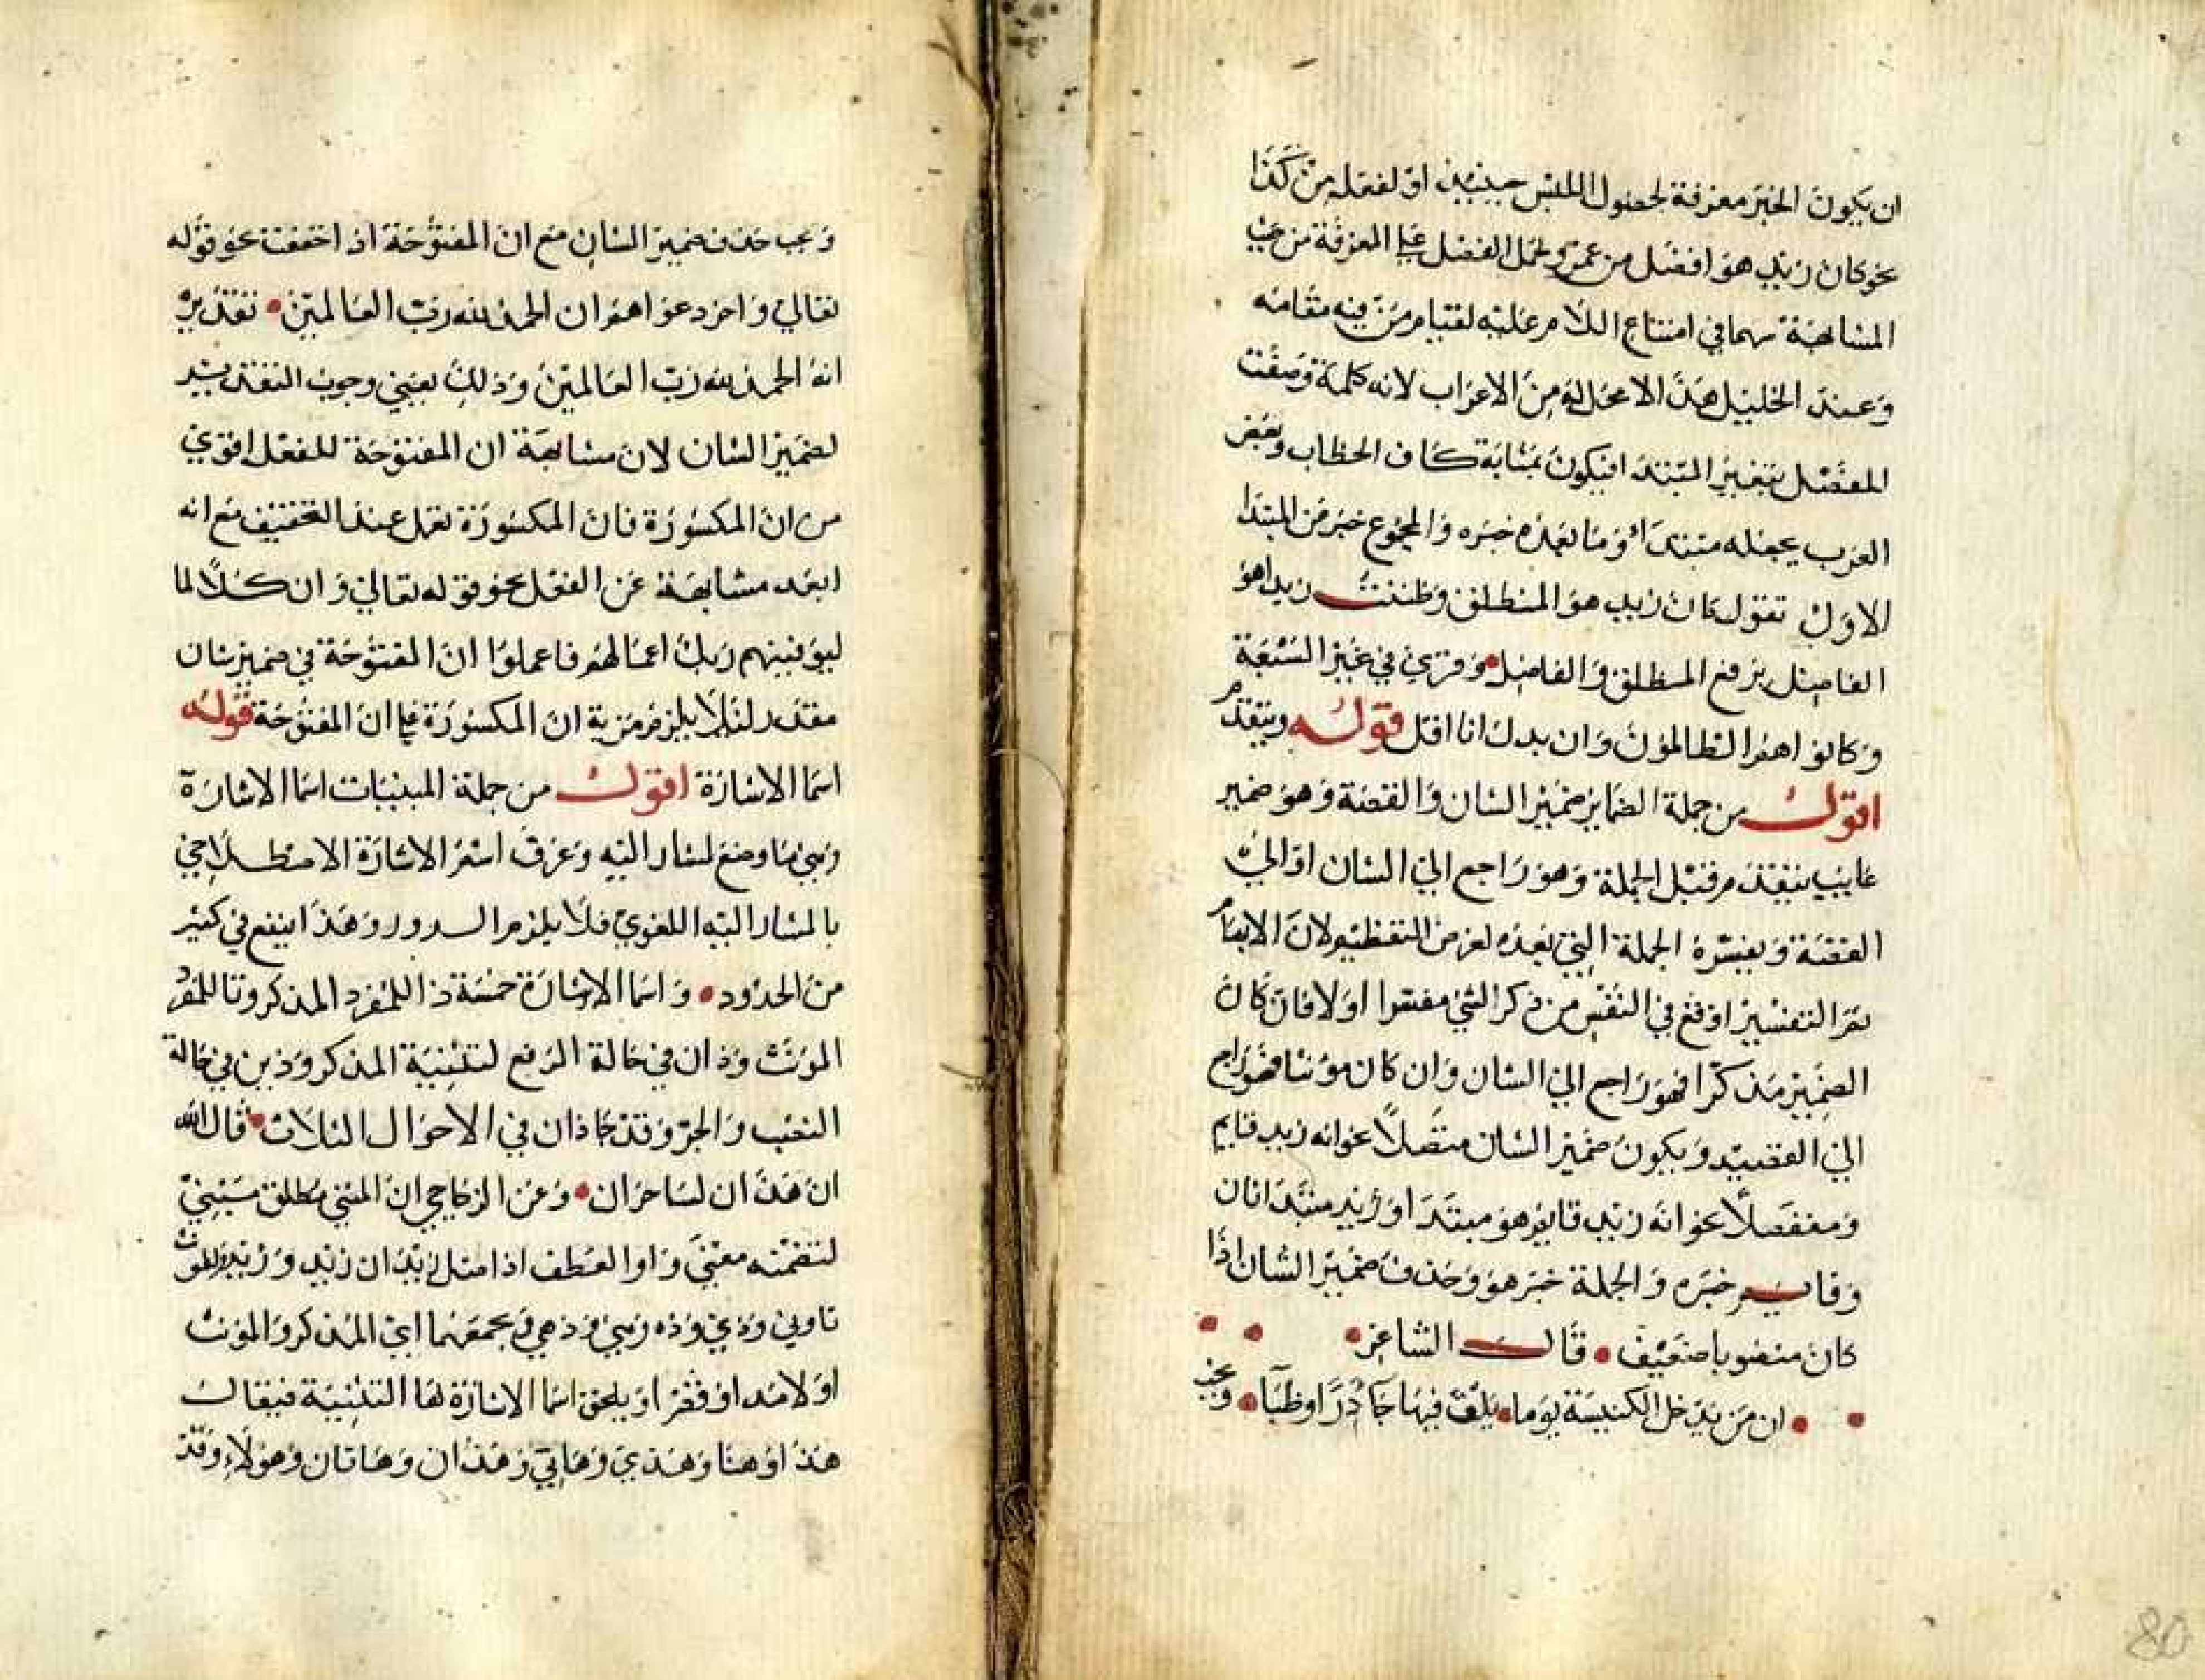 ان يكون الخبر معرفة لحصول اللبس حينيذ او لفعله من كذا
نحو كان زيد هو افضل من عمرو وحمل الفضل على المعرفة من حيث
المشابهة بهما في امتناع اللام عليه لقيام من فيه مقامه
وعند الخليل هذا لا محل له من الاعراب لانه كلمة وصفت
للفصل بتغير المبتدا فيكون بمثابة كاف الخطاب وبعض
العرب يجعله مبتدا وما بعده خبره والمجموع خبر من المبتدا
الاول تقول كان زيد هو المنطلق وظننت زيدا هو
الفاصل برفع المنطلق والفاضل • وقري في غير السبعة
وكانوا هم الظالمون وان يدك انا اقل قوله ويتقدم
اقول من جملة الضماير ضمير الشان والقصة وهو ضمير
غايب يتقدم قبل الجملة وهو راجع الي الشان او الي
القصة ويفسره الجملة التي بعده لغرض التعظيم لان الابهام
ثم التفسير اوقع في النفس من ذكر الشي مفسرا اولا فان كان
الضمير مذكرا فهو راجع الي الشان وان كان مؤنثا فهو راجع
الي القصيد ويكون ضمير الشان متصلا نحو انه زيد قايم
ومنفصلا نحو انه زيد قايم هو مبتدا وزيد مبتدا ثان
وقايم خبره والجملة خبر هو وحذف ضمير الشان اذا
كان منصوبا ضعيف • قال الشاعر • • •
• • ان من يدخل الكنيسة يوما • يلق فيها جآذرا وظبآ • ويجب
ويجب حذف ضمير الشان مع ان المفتوحة اذ اخففت نحو قوله
تعالي واخر دعواهم ان الحمد لله رب العالمين • تقديره
انه الحمد لله رب العالمين وذلك يعني وجوب التقدير
لضمير الشان لان مشابهة ان المفتوحة للفعل اقوي
من ان المكسورة فان المكسورة تعمل عند التخفيف مع انه
ابعد مشابهة عن الفعل نحو قوله تعالي وان كلا لما
ليوفينهم ربك اعمالهم فاعملوا ان المفتوحة في ضمير شان
مقدر لئلا يلزم مزية ان المكسورة علي ان المفتوحة قوله
اسما الاشارة اقول من جملة المبنيات اسما الاشارة
وهي ما وضع لمشار اليه وعرف اسم الاشارة الاصطلاحي
بالمشار اليه اللغوي فلا يلزم الدور وهذا ينفع في كثير
من الحدود • واسما الاشارة خمسة ذا للمفرد المذكر وتا للمفرد
المونث وذان في حالة الرفع لتثنية المذكر وذين في حالة
النصب والجر وقد جا ذان في الاحوال الثلاث • قال الله
ان هذان لساحران • وعن الزجاجي ان المثني مطلق مبني
لتضمنه معني واو العطف اذا مثل زيدان زيد وزيد وللمونث
تا وتي وذي وذه وتهي وذهي وبجمعهما اي المذكر والمونث
اولا مد او قصر او يلحق اسما الاشارة ها التثنية فيقال
هذا وهتا وهذي وهاتي وهذان وهاتان وهولاء وقد
80